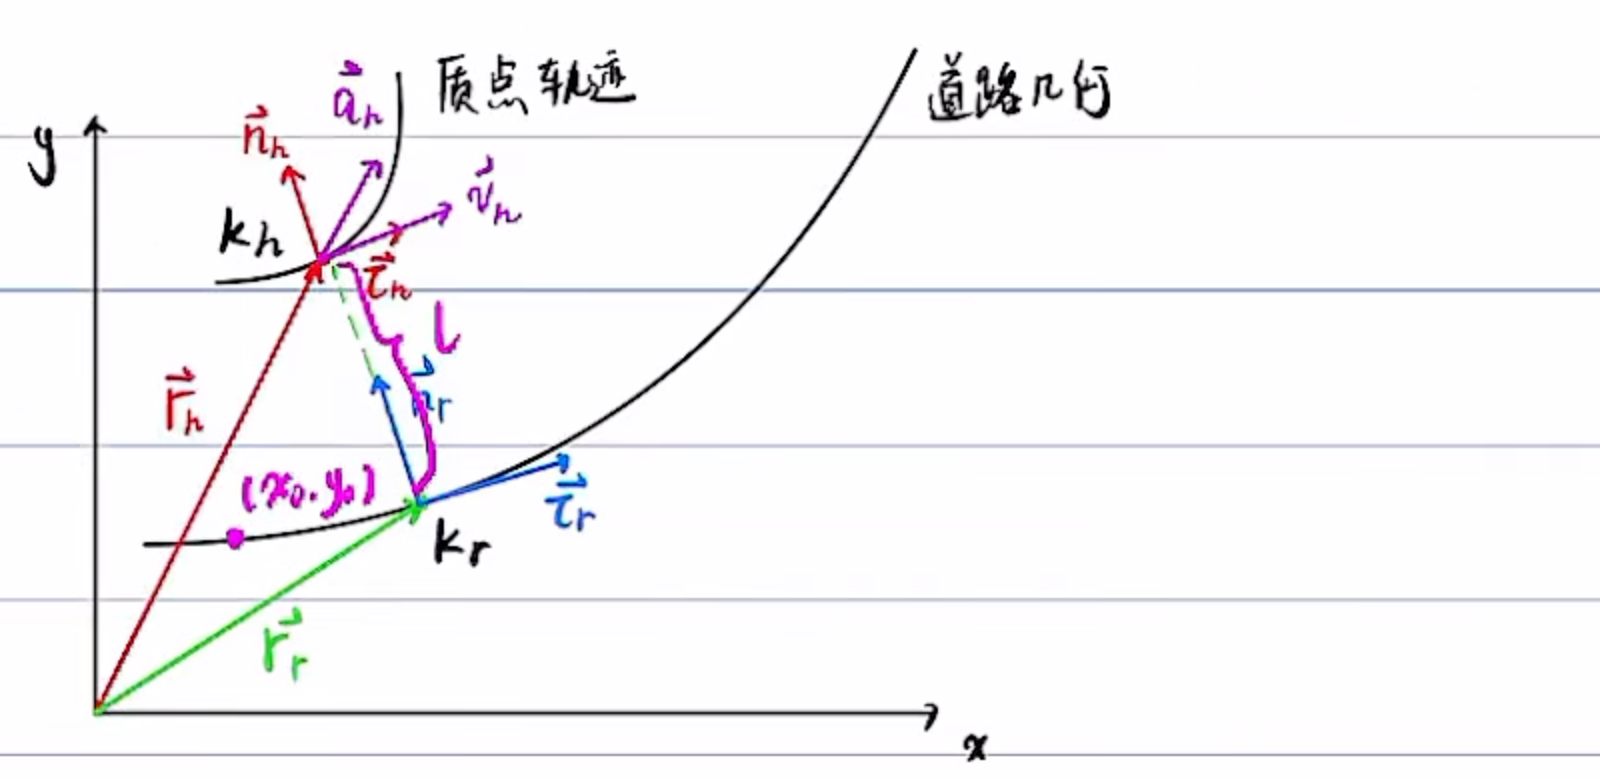 a⃗h
质点轨迹
道路几何
y
n⃗h
v⃗h
kh
τ⃗h
l
r⃗h
n⃗r
(x0, y0)
τ⃗r
kr
r⃗r
x